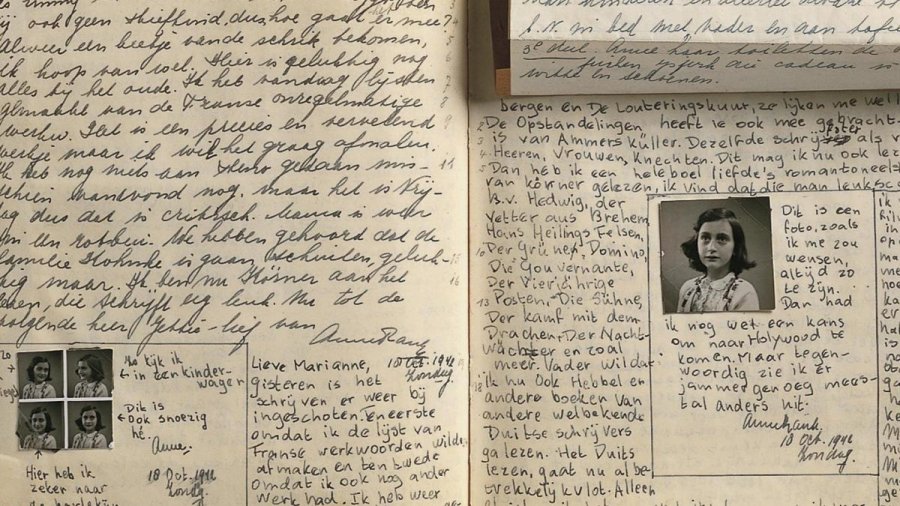 zij ook geen stiefkind, dus hoe gaat er mee?
Alweer een beetje van de schrik bekomen,
ik hoop van wel. Hier is gelukkig nog
alles bij het oude. Ik heb vandaag lijsten
gemaakt van de Franse onregelmatige
werkw. Het is een precies en vervelend
werkje maar ik wil het graag afmaken.
Ik heb nog niets aan Steno gedaan mis-
schien vanavond nog, maar het is Vrij-
dag dus dat is critisch. Mama is weer
We hebben gehoord dat de
familie is gaan schuilen, geluk-
kig maar. Ik ben nu Körner aan het
lezen, die schrijft erg leuk. Nu tot de
volgende keer Jettie-lief van
Anne Frank
Zo kijk ik
in een kinder-
wagen
Dit is
ook snoezig
hè.
Anne.
Hier heb ik
zeker naar
18 Oct. 1942
Zondag.
Lieve Marianne,
18 Oct. 1942
Zondag.
gisteren is het
schrijven er weer bij
ingeschoten. Teneerste
omdat ik de lijst van
Franse werkwoorden wilde
afmaken en ten twede
omdat ik ook nog ander
werk had. Ik heb weer
in bed met Vader en aan tafel
3e deel.
bergen en De Louteringskuur, ze lijken me wel l
De Opstandelingen, heeft ie ook mee gebracht
is van Ammers Küller. Dezelfde schrijfster als v
Heeren, Vrouwen, Knechten. Dit mag ik nu ook lez
Dan heb ik een heleboel liefde's romantoneelst
van körner gelezen, ik vind dat die man leuk sc
B.v. Hedwig, der
Vetter aus Brehem,
Hans Heilings Felsen,
Der Grüne, Domino,
Die Gouvernante,
Der Vierjährige
Posten, Die Sühne,
Der Kampf mit dem
Drachen, Der Nacht-
wächter en zoal
meer. Vader wil dat
ik nu ook Hebbel en
andere boeken van
andere welbekende
Duitse schrijvers
ga lezen. Het Duits
lezen, gaat nu al be-
trekkelijk vlot. Alleen
Dit is een
foto, zoals
ik me zou
wensen,
altijd zo
te zijn.
Dan had
ik nog wel een kans
om naar Holywood te
komen. Maar tegen-
woordig zie ik er
jammer genoeg mees-
tal anders uit.
Anne Frank.
18 Oct. 1942
Zondag.